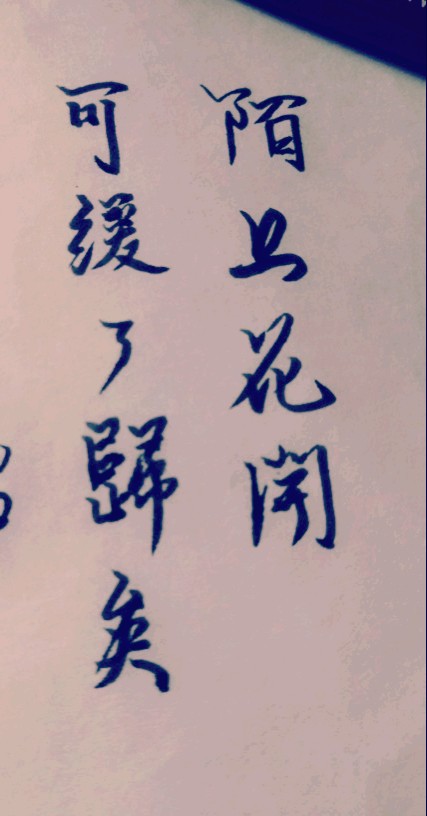 陌上花開
可緩了歸矣